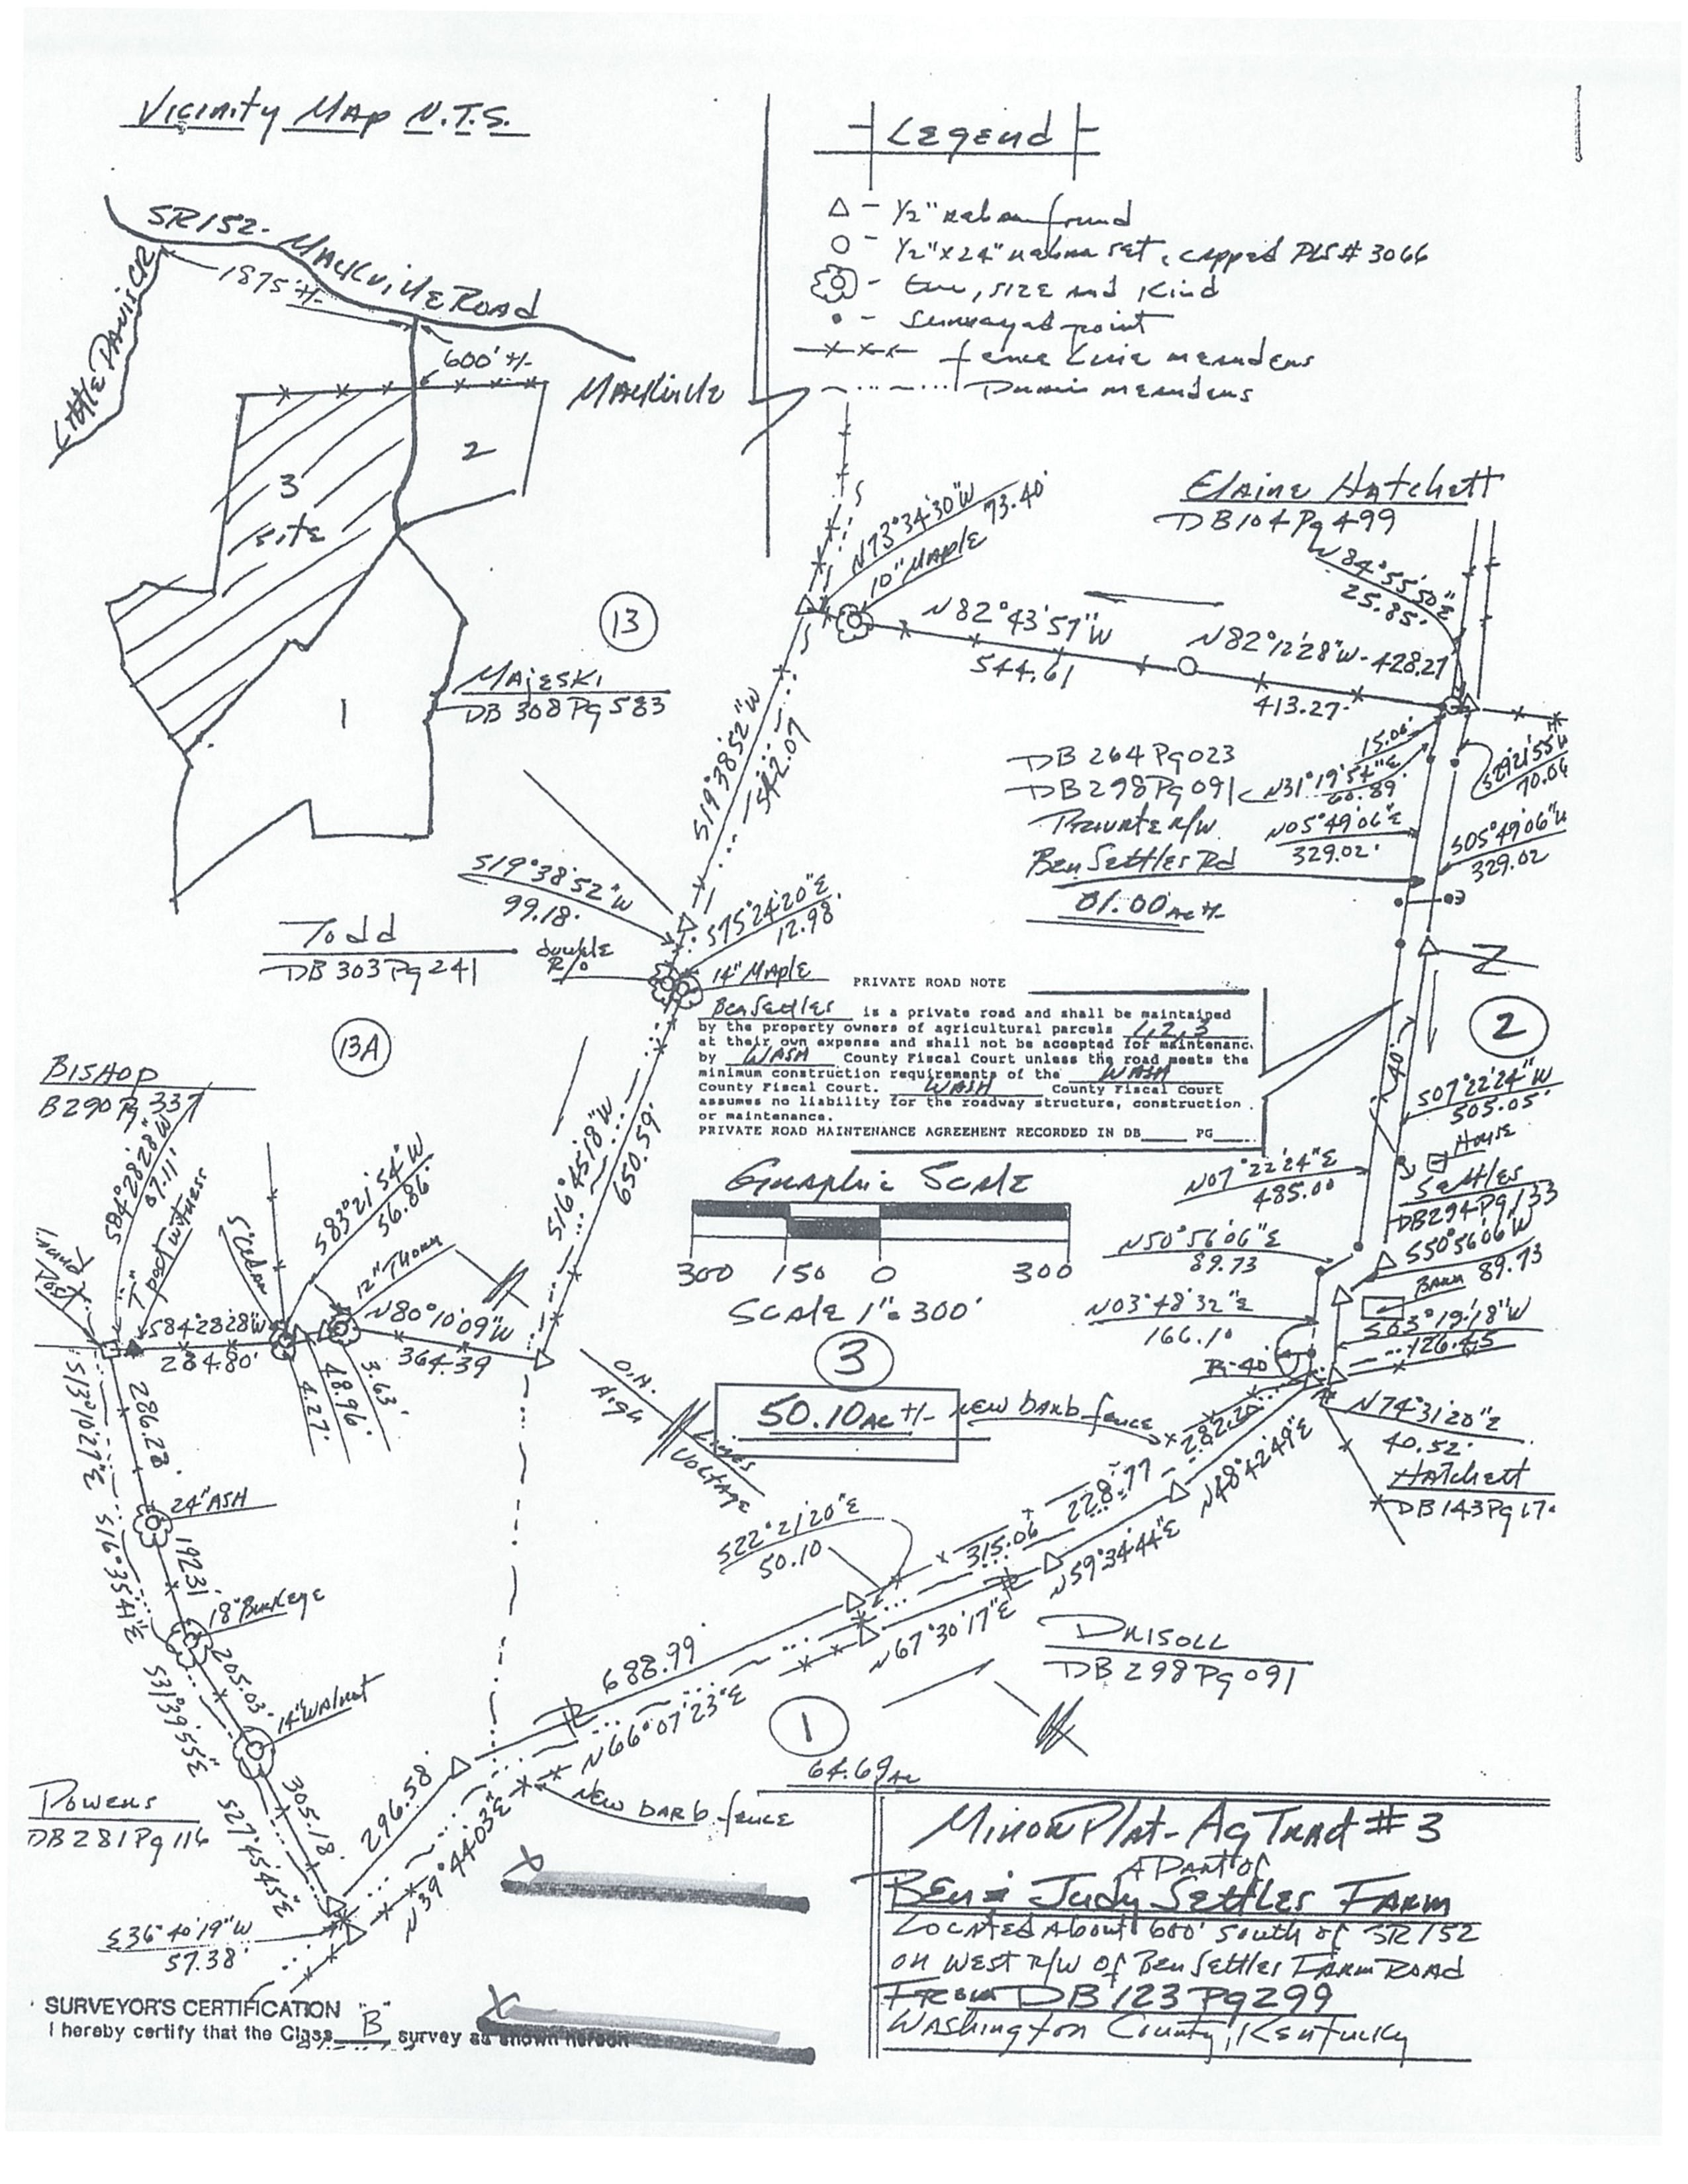 Vicinity Map N.T.S.
SR152- Mackville Road
1875' +/-
Little Davis CR
600' +/-
Mackville
2
3
site
1
Legend
△ - 1/2" rebar found
○ - 1/2"x24" rebar set, capped PLS# 3066
- tree, size and kind
• - Surveyed point
-x-x-x- fence line meanders
meanders
Elaine Hatchett
DB104 Pg 499
N84°55'50"E
25.85'
N73°34'30"W
73.40'
10" Maple
N82°43'57"W
544.61
N82°12'28"W - 428.27
413.27
15.00'
13
Majeski
DB 308 Pg 583
S19°38'52"W
542.07
DB 264 Pg 023
DB 298 Pg 091
Private R/W
Ben Settles Rd
01.00 Ac +/-
N31°19'54"E
60.89
S29°21'55"W
70.06
N05°49'06"E
329.02'
S05°49'06"W
329.02
S19°38'52"W
99.18'
S75°24'20"E
12.98'
double
R/O
14" Maple
Todd
DB 303 Pg 241
13A
PRIVATE ROAD NOTE
Ben Settles is a private road and shall be maintained
by the property owners of agricultural parcels 1,2,3
at their own expense and shall not be accepted for maintenanc.
by WASH County Fiscal Court unless the road meets the
minimum construction requirements of the WASH
County Fiscal Court. WASH County Fiscal Court
assumes no liability for the roadway structure, construction
or maintenance.
PRIVATE ROAD MAINTENANCE AGREEMENT RECORDED IN DB____ PG____
Z
2
40'
S07°22'24"W
505.05'
House
N07°22'24"E
485.00
Settles
DB294 Pg 133
Bishop
B290 Pg 337
S84°28'28"W
07.11'
"T" post witness
5" Cedar
S83°21'54"W
56.86'
12" Thorn
S16°45'18"W
650.59'
Graphic Scale
300 150 0 300
Scale 1"= 300'
N50°56'06"E
89.73
S50°56'06"W
89.73
Barn
N03°48'32"E
166.10
S03°19'18"W
126.45
R-40'
S84°28'28"W
284.80'
4.27'
48.96'
3.63'
N80°10'09"W
364.39
O.H.
High
Voltage
Lines
3
50.10 Ac +/-
new barb fence
282.20
N74°31'20"E
40.52'
Hatchett
DB143 Pg 17
S13°10'27"E
286.28
24" Ash
S16°35'41"E
192.31
18" Buckeye
S31°39'55"E
205.03'
14" Walnut
S27°45'45"E
305.18'
S22°21'20"E
50.10
315.06
228.77
N48°42'49"E
N59°34'44"E
N67°30'17"E
Drisoll
DB 298 Pg 091
688.99
N66°07'23"E
1
64.69 Ac
296.58'
N39°44'03"E
New barb. fence
Powens
DB 281 Pg 116
S36°40'19"W
57.38'
X
X
SURVEYOR'S CERTIFICATION
I hereby certify that the Class "B" survey as shown hereon
Minor Plat- Ag Tract # 3
A Part of
Ben & Judy Settles Farm
Located About 600' South of SR152
on West R/W of Ben Settles Farm Road
From DB 123 Pg 299
Washington County, Kentucky